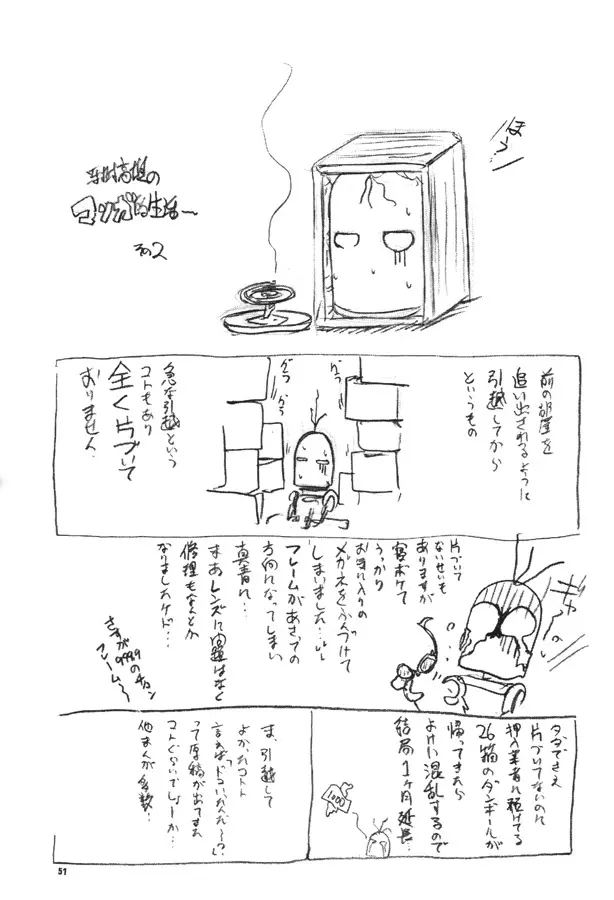 ほうっ
マンガ的生活〜
その2
前の部屋を
追い出されるように
引越してから
というもの
ガッ
ガッ
急な引越という
コトもあり
全く片づいて
おりません
片づいて
ないせいも
ありますが
寝ボケて
うっかり
お気に入りの
メガネをふんづけて
しまいました…
フレームがあさっての
方向になってしまい
真青に…
まぁレンズに問題はなく
修理もなんとか
なりましたケド…
さすが
999.9の
フレーム〜
タダでさえ
片づいてないのに
押入業者に預けてる
26箱のダンボールが
帰ってきたら
よけい混乱するので
結局1ヶ月延長…
1000
ま、引越して
よかったコト
言えば
って原稿が出てきた
コトぐらいでしょーか…
他まんが多数…
51